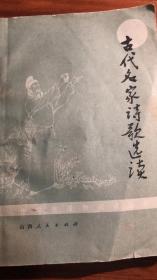 古代名家诗歌选读
山西人民出版社